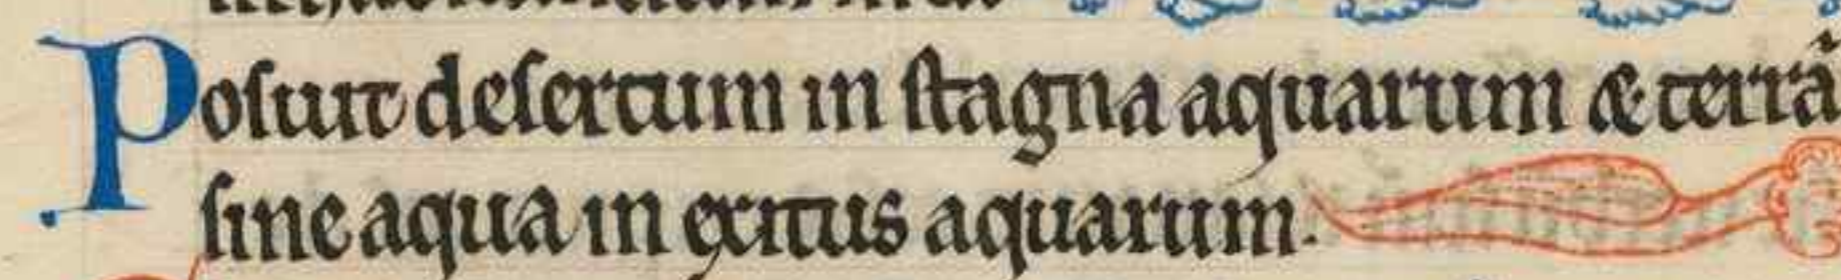 Poſuit deſertum in ſtagna aquarum & terrã
ſine aqua in exitus aquarum.